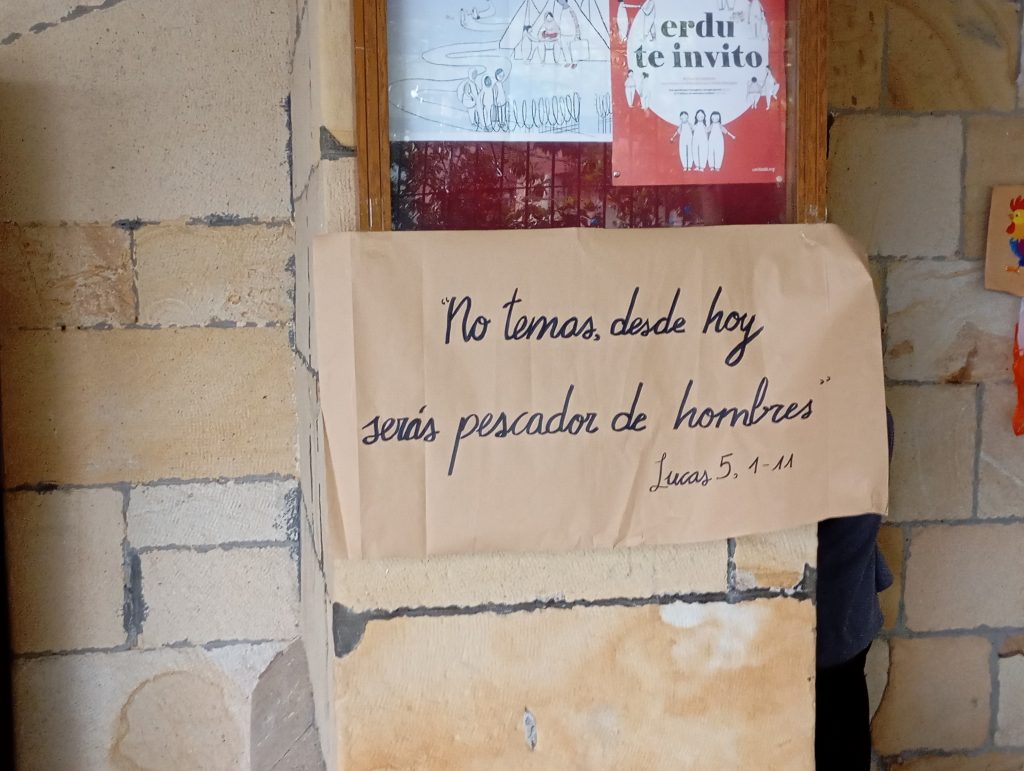 erdu
te invito
"No temas, desde hoy
serás pescador de hombres"
Lucas 5, 1-11